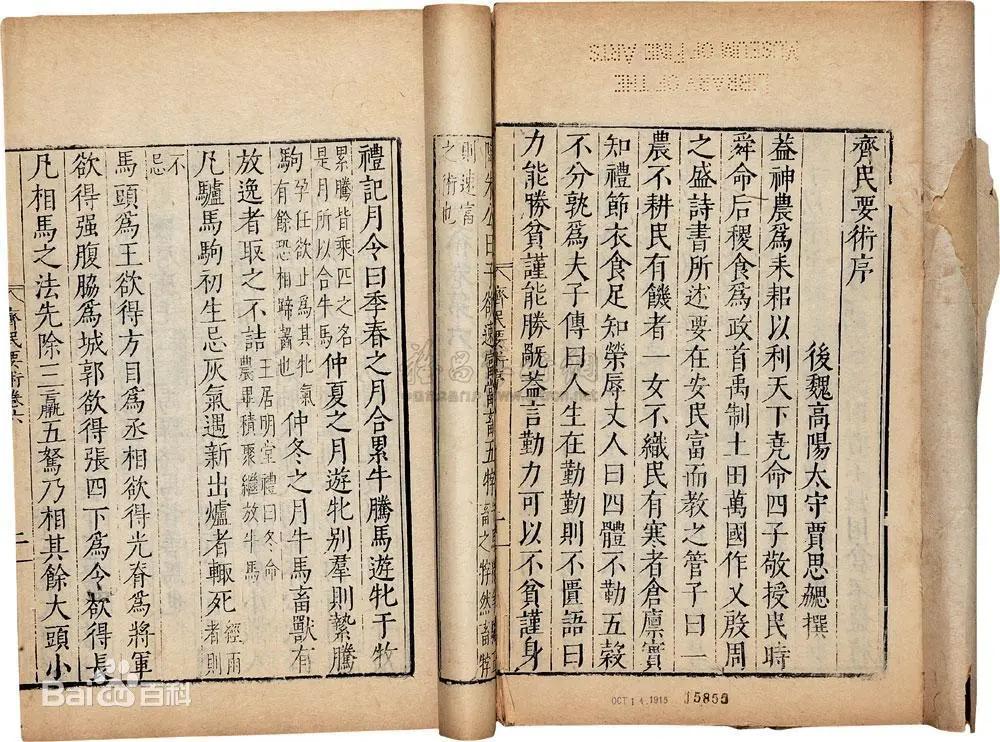 齊民要術序
後魏高陽太守賈思勰撰
葢神農爲耒耜以利天下堯命四子敬授民時
舜命后稷食爲政首禹制土田萬國作乂殷周
之盛詩書所述要在安民富而教之管子曰一
農不耕民有饑者一女不織民有寒者倉廩實
知禮節衣食足知榮辱丈人曰四體不勤五穀
不分孰爲夫子傳曰人生在勤勤則不匱語曰
力能勝貧謹能勝禍葢言勤力可以不貧謹身
齊民要術序
則速富
之術也
禮記月令曰季春之月合累牛騰馬遊牝于牧
累騰皆乘匹之名
是月所以合牛馬
仲夏之月遊牝別羣則縶騰
駒
孕任欲止爲其牝氣
有餘恐相蹄齧也
仲冬之月牛馬畜獸有
放逸者取之不詰
王居明堂禮曰冬命
農畢積聚繼放牛馬
凡驢馬駒初生忌灰氣遇新出爐者輙死
經雨
者則
不
忌
馬頭爲王欲得方目爲丞相欲得光脊爲將軍
欲得强腹脇爲城郭欲得張四下爲令欲得長
凡相馬之法先除三羸五駑乃相其餘大頭小
齊民要術卷六
二
LIBRARY OF THE
MUSEUM OF FINE ARTS
OCT 14 1915
15855
Baidu百科